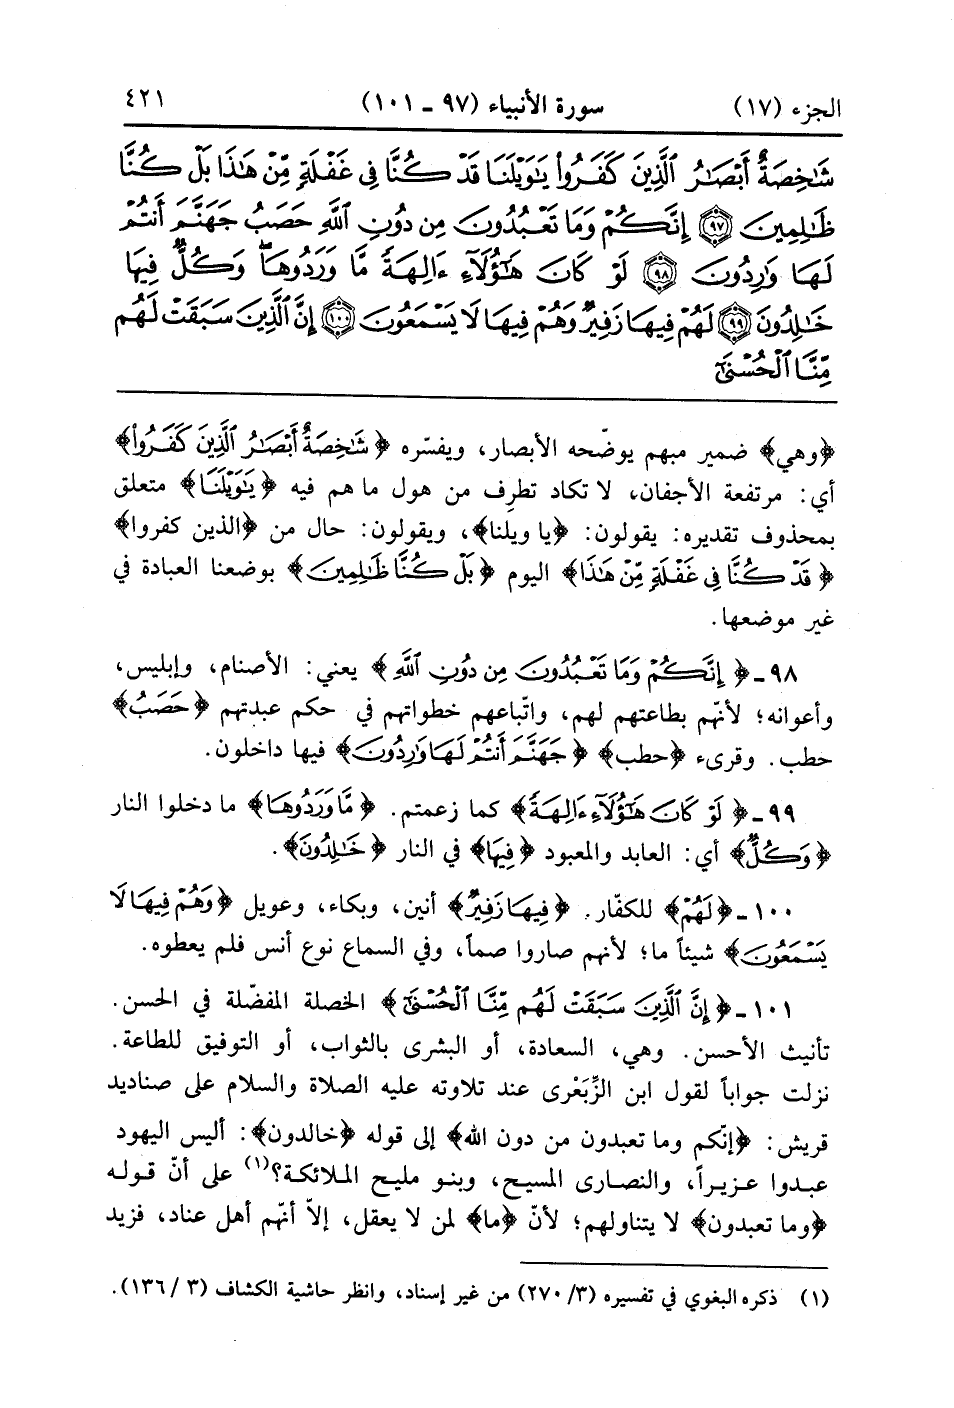 الجزء (١٧) سورة الأنبياء (٩٧ - ١٠١) ٤٢١
شَـٰخِصَةٌ أَبْصَـٰرُ ٱلَّذِينَ كَفَرُوا۟ يَـٰوَيْلَنَا قَدْ كُنَّا فِى غَفْلَةٍ مِّنْ هَـٰذَا بَلْ كُنَّا
ظَـٰلِمِينَ ﴿٩٧﴾ إِنَّكُمْ وَمَا تَعْبُدُونَ مِن دُونِ ٱللَّهِ حَصَبُ جَهَنَّمَ أَنتُمْ
لَهَا وَٰرِدُونَ ﴿٩٨﴾ لَوْ كَانَ هَـٰٓؤُلَآءِ ءَالِهَةً مَّا وَرَدُوهَا ۖ وَكُلٌّ فِيهَا
خَـٰلِدُونَ ﴿٩٩﴾ لَهُمْ فِيهَا زَفِيرٌ وَهُمْ فِيهَا لَا يَسْمَعُونَ ﴿١٠٠﴾ إِنَّ ٱلَّذِينَ سَبَقَتْ لَهُم
مِّنَّا ٱلْحُسْنَىٰٓ
﴿وهي﴾ ضمير مبهم يوضّحه الأبصار، ويفسّره ﴿شَـٰخِصَةٌ أَبْصَـٰرُ ٱلَّذِينَ كَفَرُوا۟﴾
أي: مرتفعة الأجفان، لا تكاد تطرِف من هول ما هم فيه ﴿يَـٰوَيْلَنَا﴾ متعلق
بمحذوف تقديره: يقولون: ﴿يا ويلنا﴾، ويقولون: حال من ﴿الذين كفروا﴾
﴿قَدْ كُنَّا فِى غَفْلَةٍ مِّنْ هَـٰذَا﴾ اليوم ﴿بَلْ كُنَّا ظَـٰلِمِينَ﴾ بوضعنا العبادة في
غير موضعها.
٩٨ - ﴿إِنَّكُمْ وَمَا تَعْبُدُونَ مِن دُونِ ٱللَّهِ﴾ يعني: الأصنام، وإبليس،
وأعوانه؛ لأنّهم بطاعتهم لهم، واتّباعهم خطواتهم في حكم عبدتهم ﴿حَصَبُ﴾
حطب. وقرىء ﴿حطب﴾ ﴿جَهَنَّمَ أَنتُمْ لَهَا وَٰرِدُونَ﴾ فيها داخلون.
٩٩ - ﴿لَوْ كَانَ هَـٰٓؤُلَآءِ ءَالِهَةً﴾ كما زعمتم. ﴿مَّا وَرَدُوهَا﴾ ما دخلوا النار
﴿وَكُلٌّ﴾ أي: العابد والمعبود ﴿فِيهَا﴾ في النار ﴿خَـٰلِدُونَ﴾.
١٠٠ - ﴿لَهُمْ﴾ للكفّار. ﴿فِيهَا زَفِيرٌ﴾ أنين، وبكاء، وعويل ﴿وَهُمْ فِيهَا لَا
يَسْمَعُونَ﴾ شيئاً ما؛ لأنهم صاروا صماً، وفي السماع نوع أنس فلم يعطوه.
١٠١ - ﴿إِنَّ ٱلَّذِينَ سَبَقَتْ لَهُم مِّنَّا ٱلْحُسْنَىٰٓ﴾ الخصلة المفضّلة في الحسن.
تأنيث الأحسن. وهي، السعادة، أو البشرى بالثواب، أو التوفيق للطاعة.
نزلت جواباً لقول ابن الزِّبَعْرى عند تلاوته عليه الصلاة والسلام على صناديد
قريش: ﴿إنّكم وما تعبدون من دون الله﴾ إلى قوله ﴿خالدون﴾: أليس اليهود
عبدوا عزيراً، والنصارى المسيح، وبنو مليح الملائكة؟(١) على أنّ قوله
﴿وما تعبدون﴾ لا يتناولهم؛ لأنّ ﴿ما﴾ لمن لا يعقل، إلاّ أنّهم أهل عناد، فزيد
(١) ذكره البغوي في تفسيره (٣/٢٧٠) من غير إسناد، وانظر حاشية الكشاف (٣ / ١٣٦).